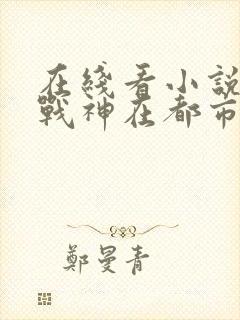 在綫看小説
戰神在都市
鄭曼青